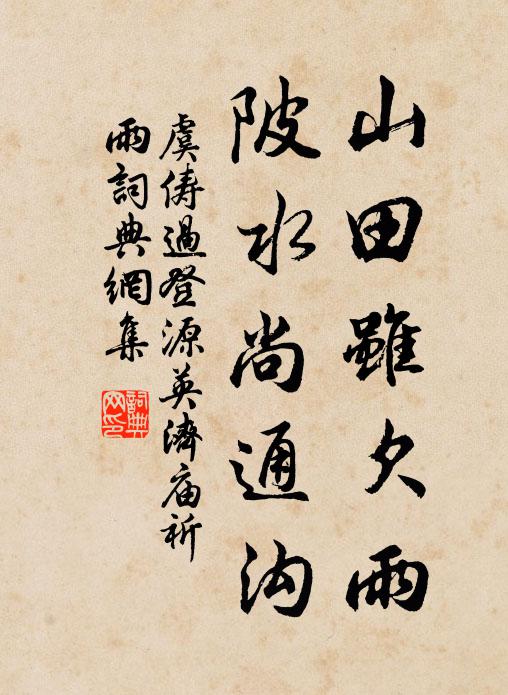 山田雖欠雨
陂水尚通沟
虞俦過登源英濟庙祈
雨詞典網集
詞典
网印